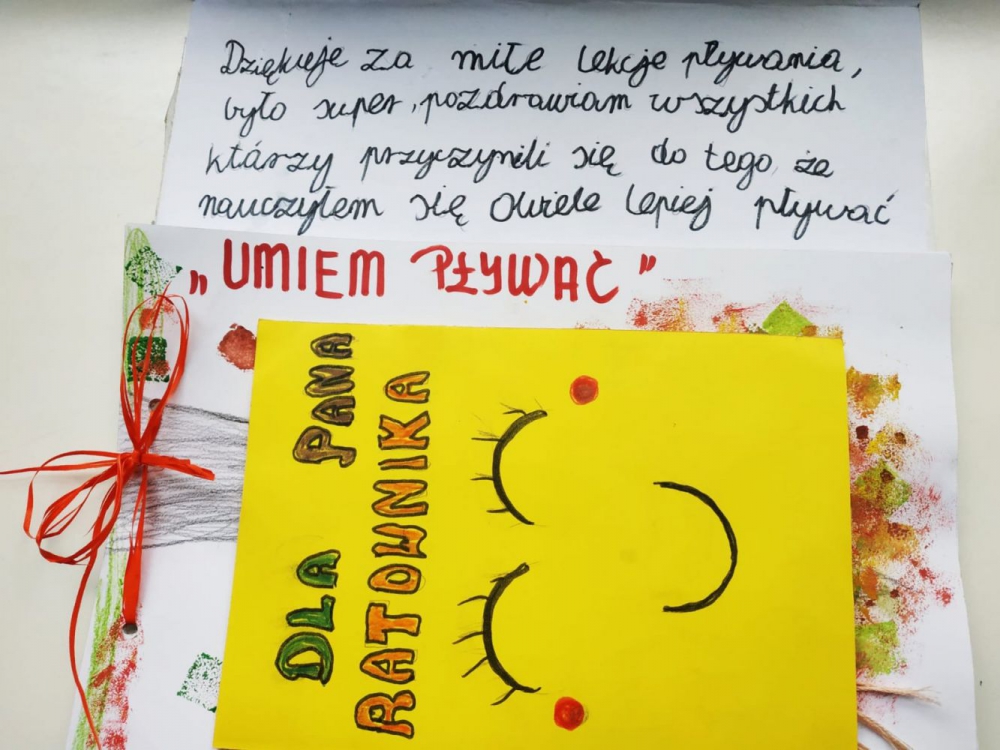 Dziękuje za miłe lekcje pływania,
było super, pozdrawiam wszystkich
którzy przyczynili się do tego, że
nauczyłem się owiele lepiej pływać
„UMIEM PŁYWAĆ"
DLA PANA
RATOWNIKA